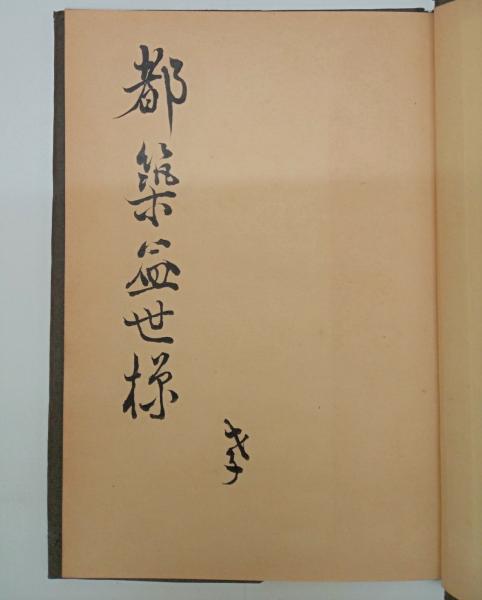 都築益世様